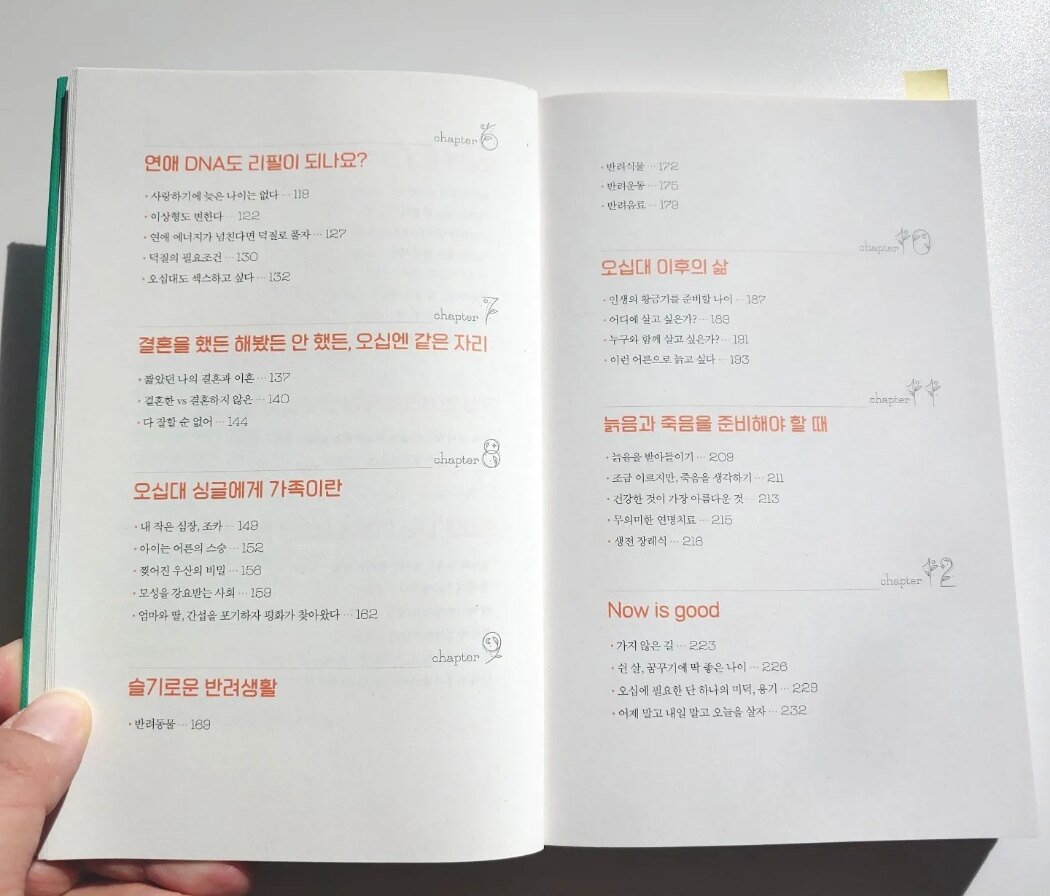 chapter 6
연애 DNA도 리필이 되나요?
• 사랑하기에 늦은 나이는 없다 ··· 119
• 이상형도 변한다 ··· 122
• 연애 에너지가 넘친다면 덕질로 풀자 ··· 127
• 덕질의 필요조건 ··· 130
• 오십대도 섹스하고 싶다 ··· 132
chapter 7
결혼을 했든 해봤든 안 했든, 오십엔 같은 자리
• 짧았던 나의 결혼과 이혼 ··· 137
• 결혼한 vs 결혼하지 않은 ··· 140
• 다 잘할 순 없어 ··· 144
chapter 8
오십대 싱글에게 가족이란
• 내 작은 심장, 조카 ··· 149
• 아이는 어른의 스승 ··· 152
• 찢어진 우산의 비밀 ··· 156
• 모성을 강요받는 사회 ··· 159
• 엄마와 딸, 간섭을 포기하자 평화가 찾아왔다 ··· 162
chapter 9
슬기로운 반려생활
• 반려동물 ··· 169
• 반려식물 ··· 172
• 반려운동 ··· 175
• 반려음료 ··· 179
chapter 10
오십대 이후의 삶
• 인생의 황금기를 준비할 나이 ··· 187
• 어디에 살고 싶은가? ··· 189
• 누구와 함께 살고 싶은가? ··· 191
• 이런 어른으로 늙고 싶다 ··· 193
chapter 11
늙음과 죽음을 준비해야 할 때
• 늙음을 받아들이기 ··· 209
• 조금 이르지만, 죽음을 생각하기 ··· 211
• 건강한 것이 가장 아름다운 것 ··· 213
• 무의미한 연명치료 ··· 215
• 생전 장례식 ··· 218
chapter 12
Now is good
• 가지 않은 길 ··· 223
• 쉰 살, 꿈꾸기에 딱 좋은 나이 ··· 226
• 오십에 필요한 단 하나의 미덕, 용기 ··· 229
• 어제 말고 내일 말고 오늘을 살자 ··· 232